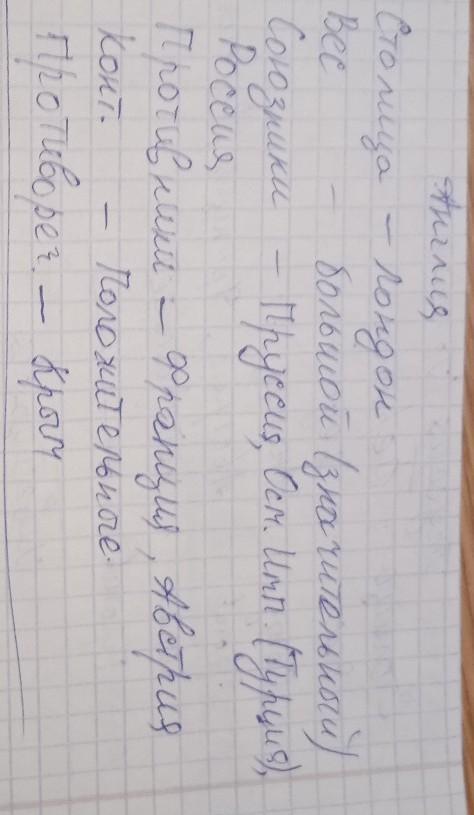 Англия
Столица – Лондон
Вес – большой (значительный)
Союзники – Пруссия, Осм. Имп. (Турция),
Россия
Противники – Франция, Австрия
Конт. – Положительные.
Противореч. – Крым